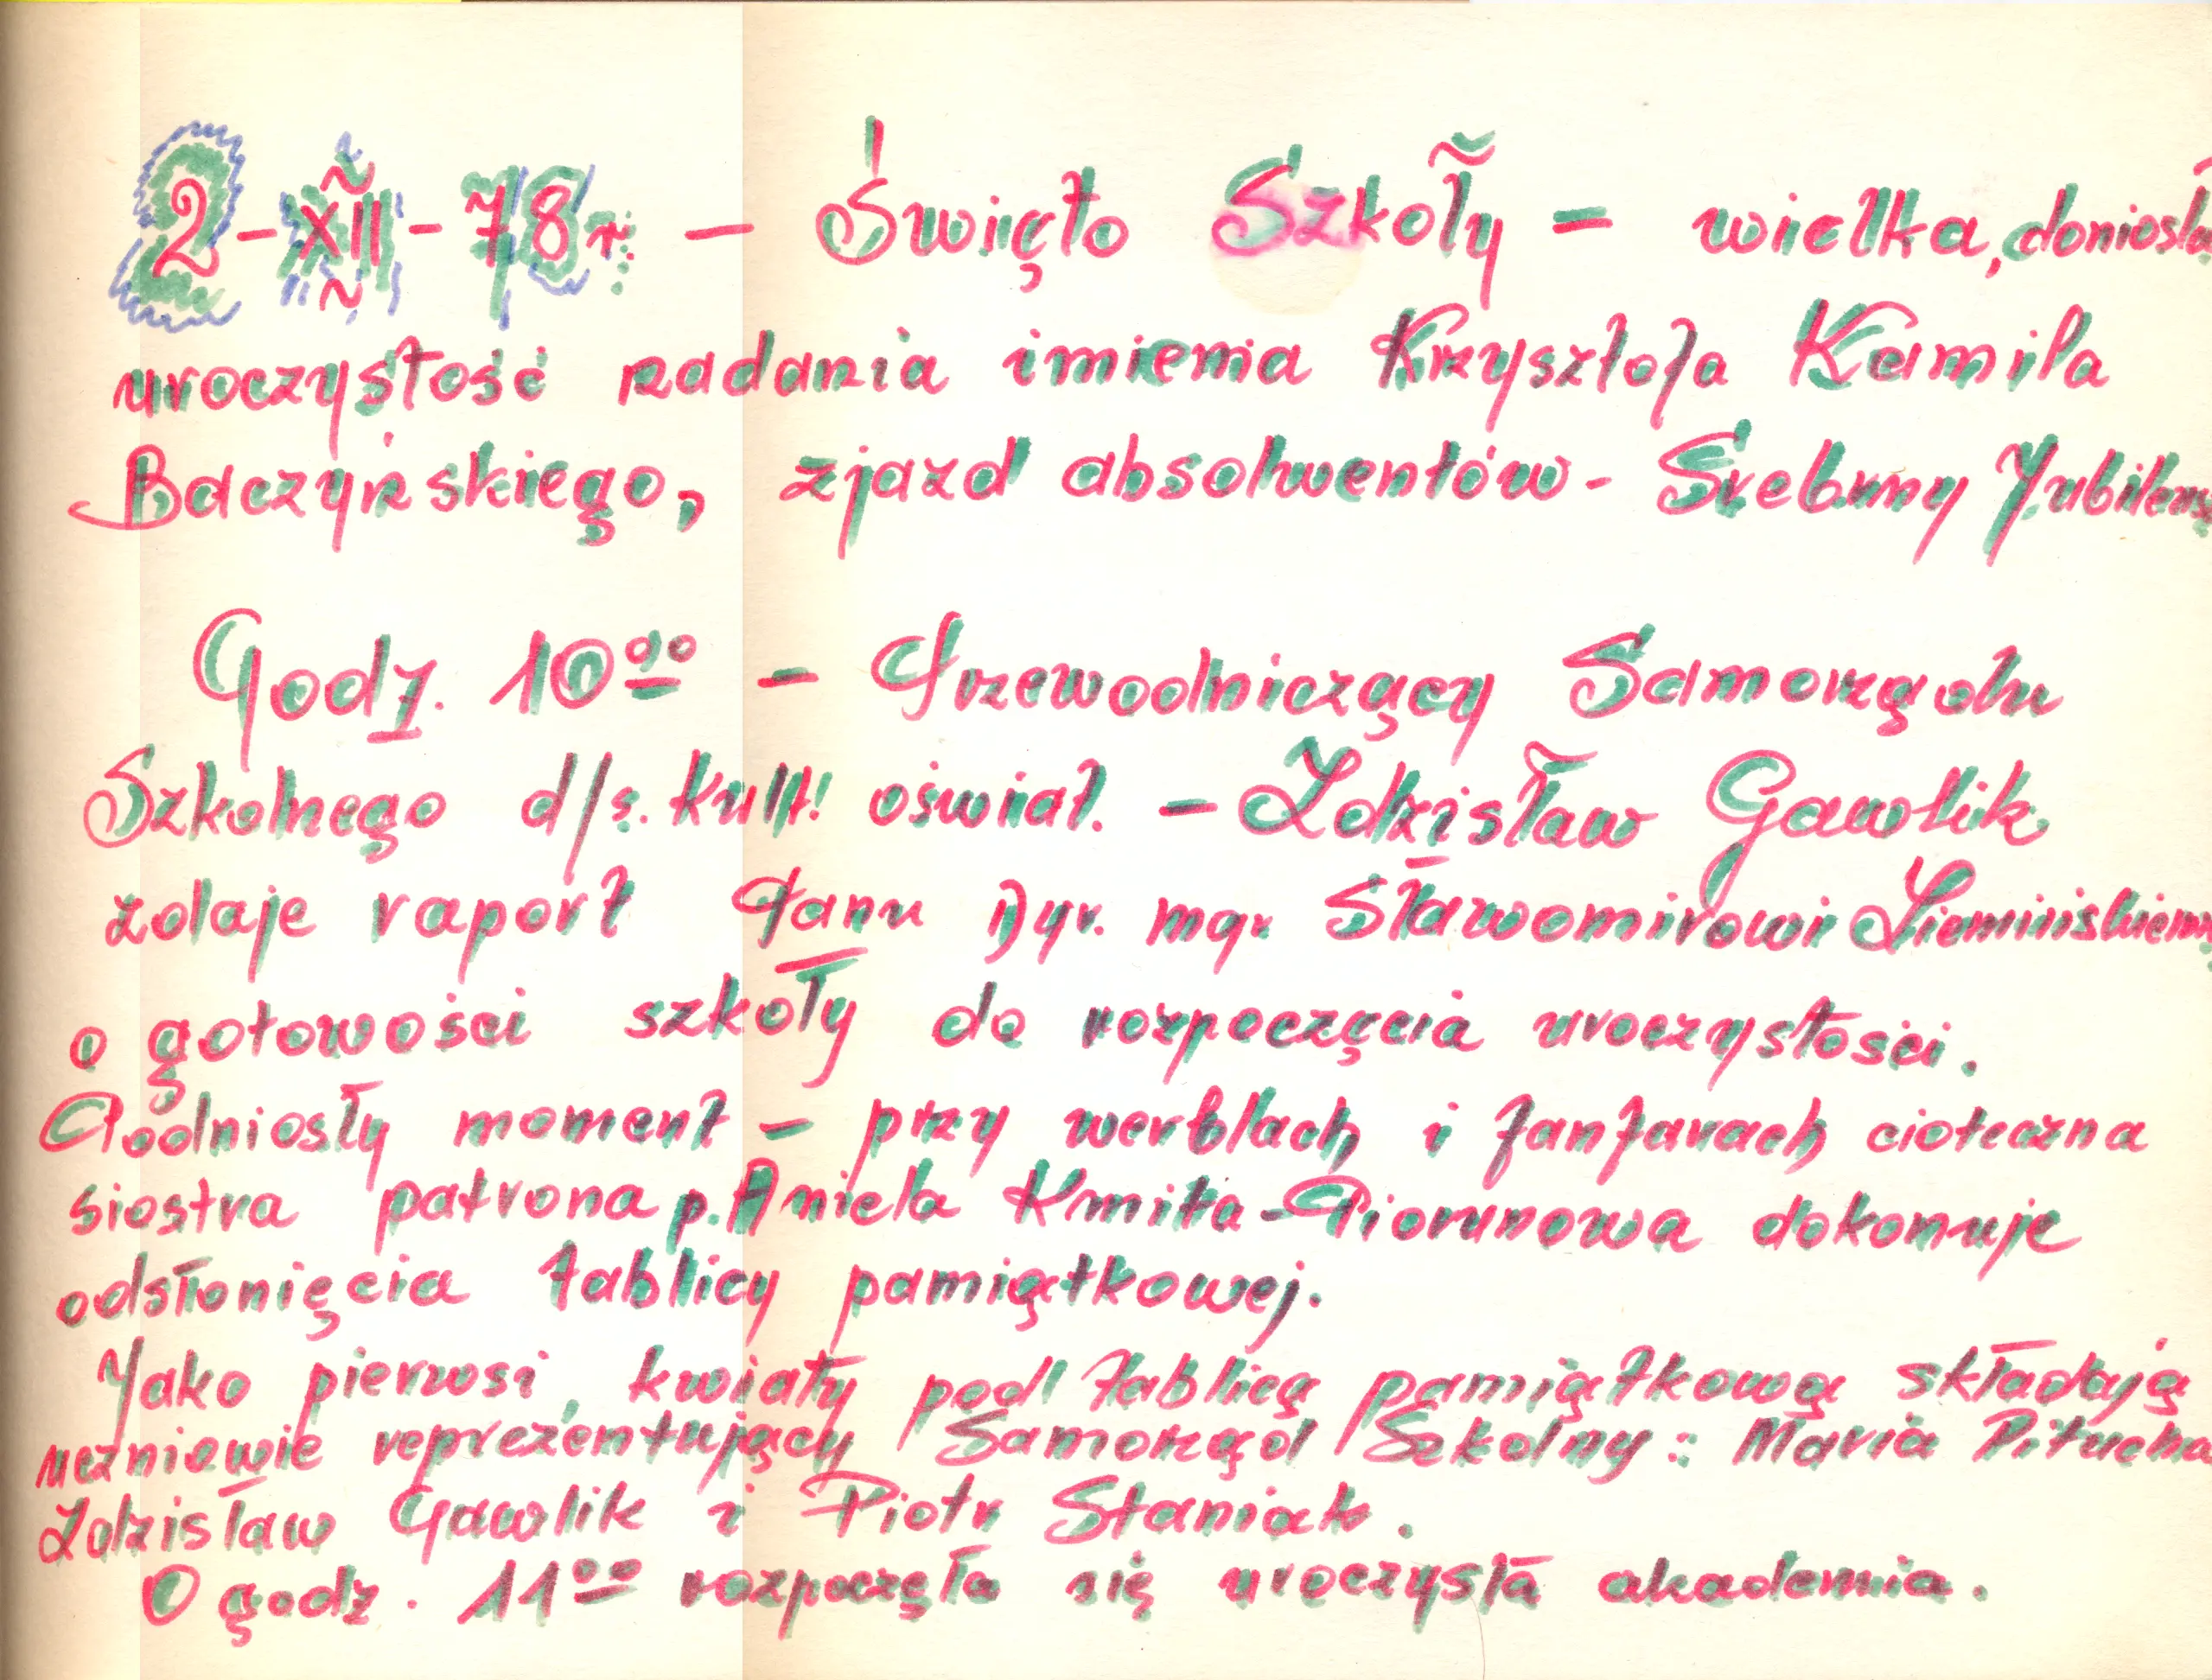 2-XII-78r. — Święto Szkoły – wielka, doniosła
uroczystość nadania imienia Krzysztofa Kamila
Baczyńskiego, zjazd absolwentów - Srebrny Jubileusz
Godz. 10⁰⁰ – Przewodniczący Samorządu
Szkolnego d/s. kult. oświat. – Zdzisław Gawlik
zdaje raport Panu Dyr. mgr Sławomirowi
o gotowości szkoły do rozpoczęcia uroczystości.
Podniosły moment – przy werblach i fanfarach cioteczna
siostra patrona p. Aniela Kmita-Piorunowa dokonuje
odsłonięcia tablicy pamiątkowej.
Jako pierwsi, kwiaty pod tablicą pamiątkową składają
uczniowie reprezentujący Samorząd Szkolny: Maria Pitucha
Zdzisław Gawlik i Piotr Staniak.
O godz. 11⁰⁰ rozpoczęła się uroczysta akademia.